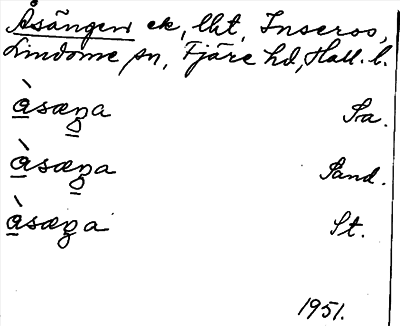 Åsängen ek, lht, Inseros,
Lindome sn, Fjäre hd, Hall. l.
àsæŋa Sa.
àsæŋa Sand.
àsæŋa St.
1951.